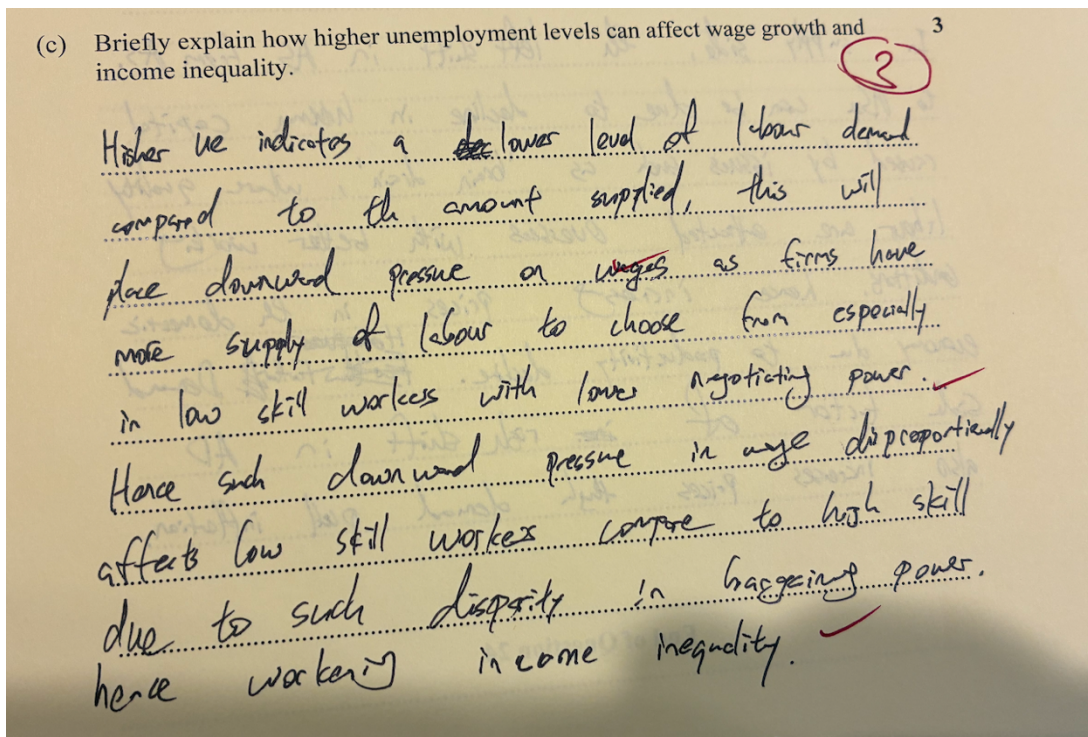 (c) Briefly explain how higher unemployment levels can affect wage growth and 3
income inequality.
3
Higher ue indicates a lower level of labour demand
compared to th amount supplied, this will
place downward pressue on wages as firms have
more supply of labour to choose from especially
in low skill workers with lower negotiating power.
Hence such downward pressue in wage disproportionally
affects low skill workers compare to high skill
due to such disparity in bargaining power.
hence workening income inequality.